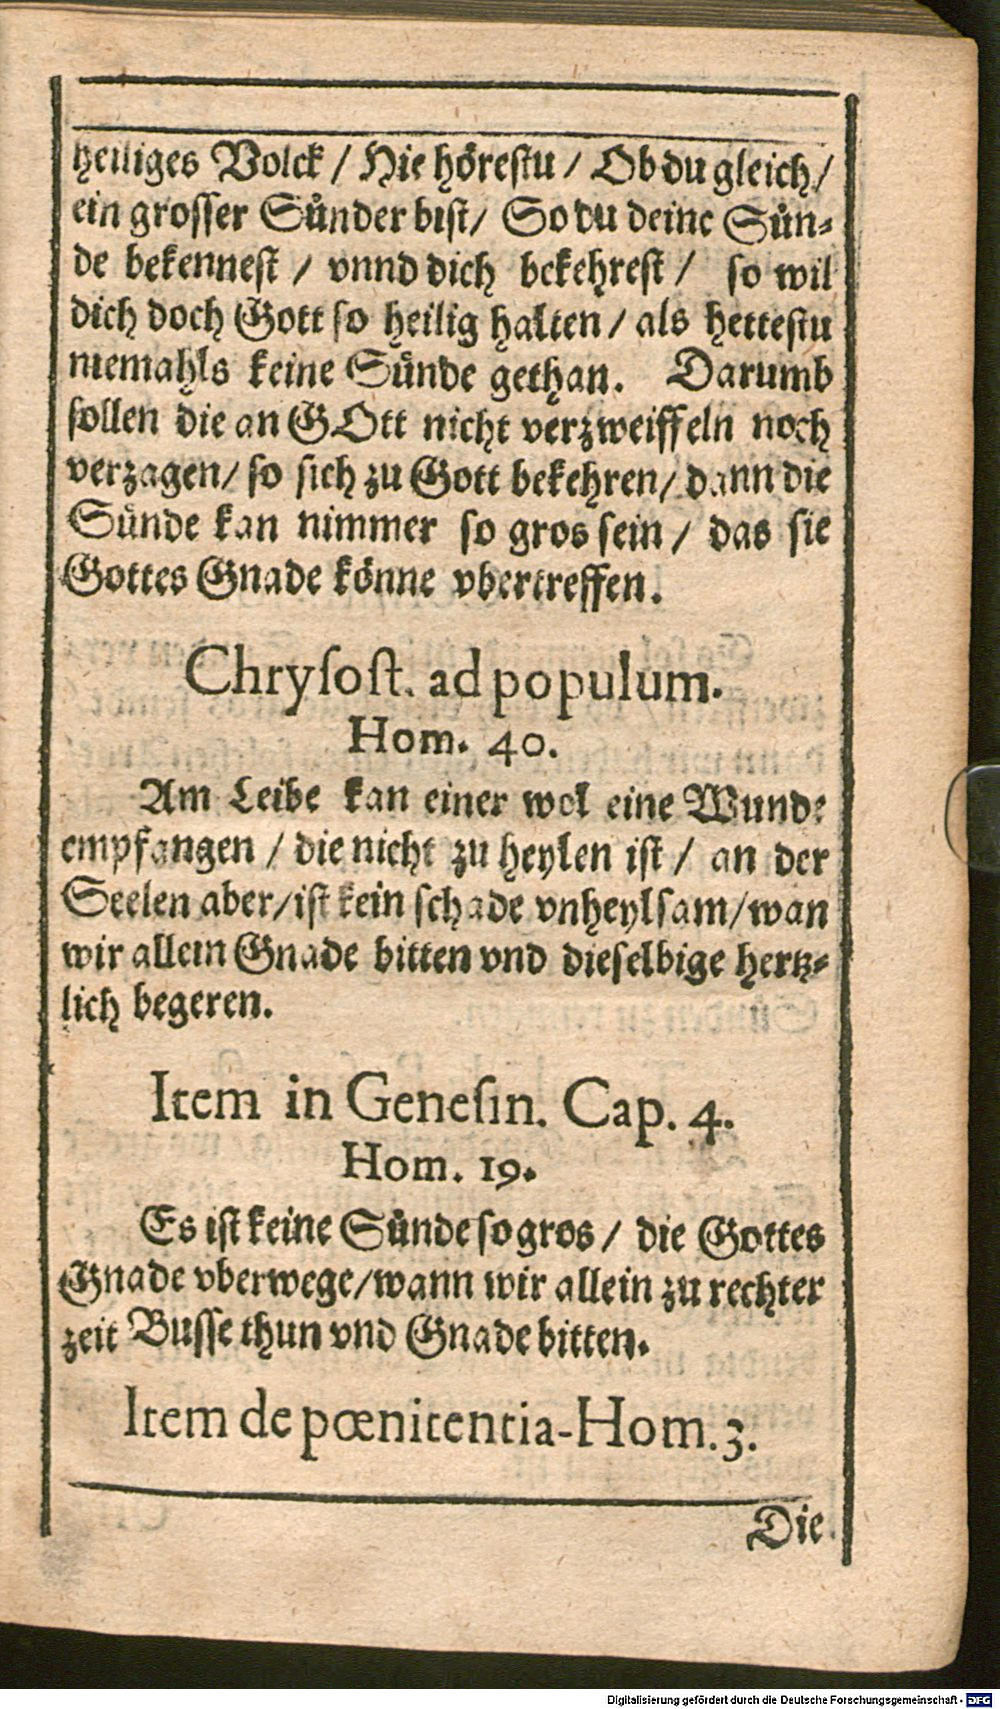 heiliges Volck / Hie hörestu / Ob du gleich /
ein grosser Sünder bist / So du deine Sün⸗
de bekennest / vnnd dich bekehrest / so wil
dich doch Gott so heilig halten / als hettestu
niemahls keine Sünde gethan. Darumb
sollen die an GOtt nicht verzweiffeln noch
verzagen / so sich zu Gott bekehren / dann die
Sünde kan nimmer so gros sein / das sie
Gottes Gnade könne vbertreffen.
Chrysost. ad populum.
Hom. 40.
Am Leibe kan einer wol eine Wunde
empfangen / die nicht zu heylen ist / an der
Seelen aber / ist kein schade vnheylsam / wan
wir allein Gnade bitten vnd dieselbige hertz⸗
lich begeren.
Item in Genesin. Cap. 4.
Hom. 19.
Es ist keine Sünde so gros / die Gottes
Gnade vberwege / wann wir allein zu rechter
zeit Busse thun vnd Gnade bitten.
Item de pœnitentia-Hom. 3.
Die
Digitalisierung gefördert durch die Deutsche Forschungsgemeinschaft - DFG